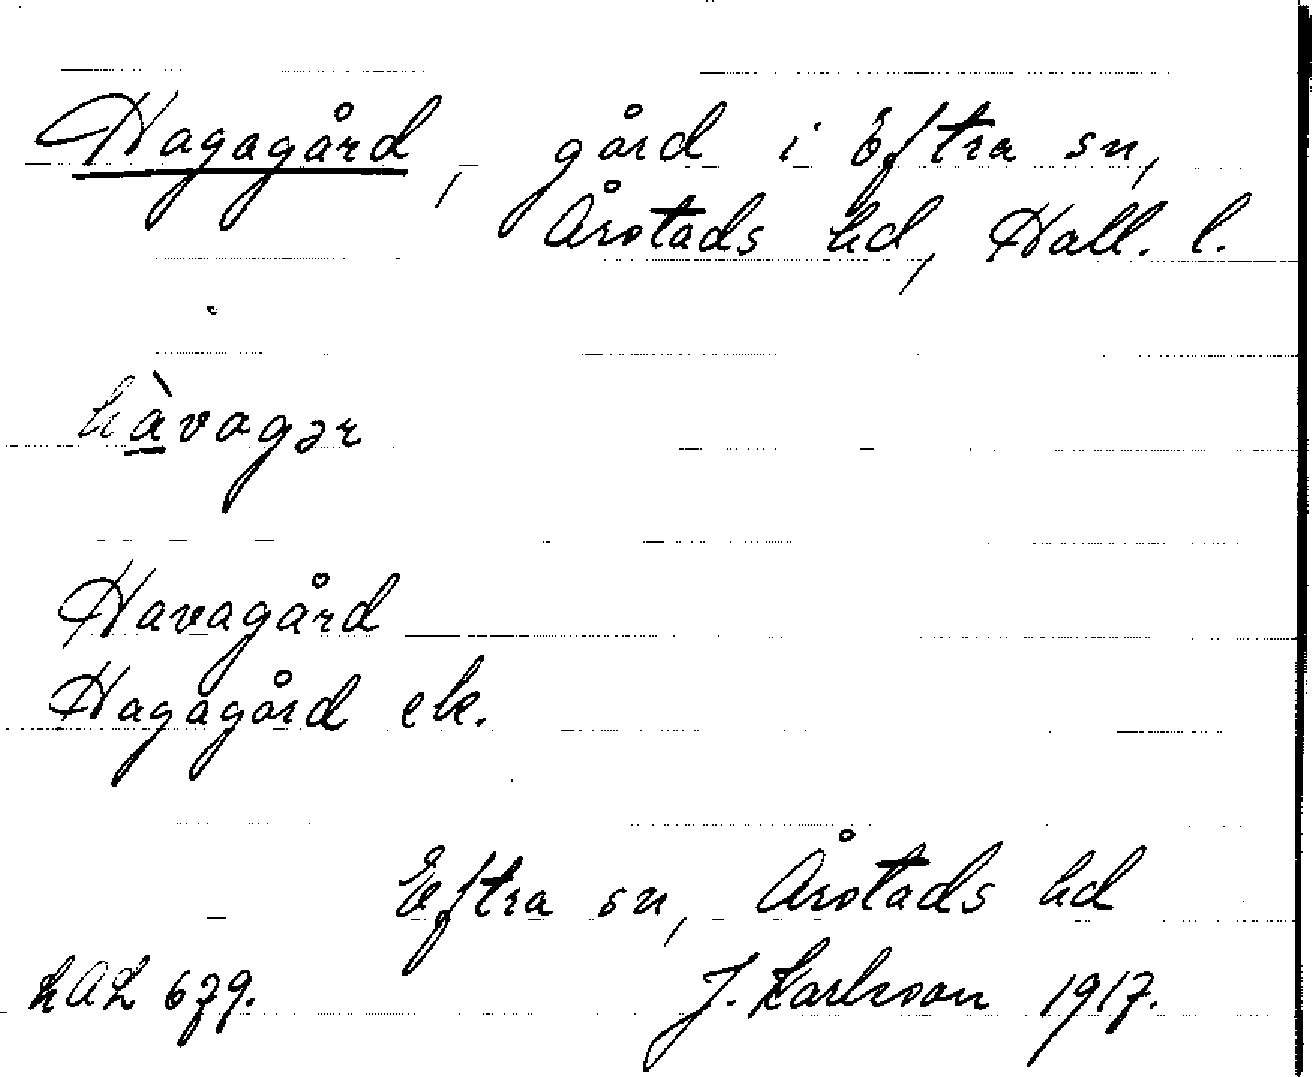 Hagagård, gård i Eftra sn,
Årstads hd, Hall. l.
hàvagər
Havagård
Hagagård ek.
Eftra sn, Årstads hd
LAL 679. J. Karlsson 1917.